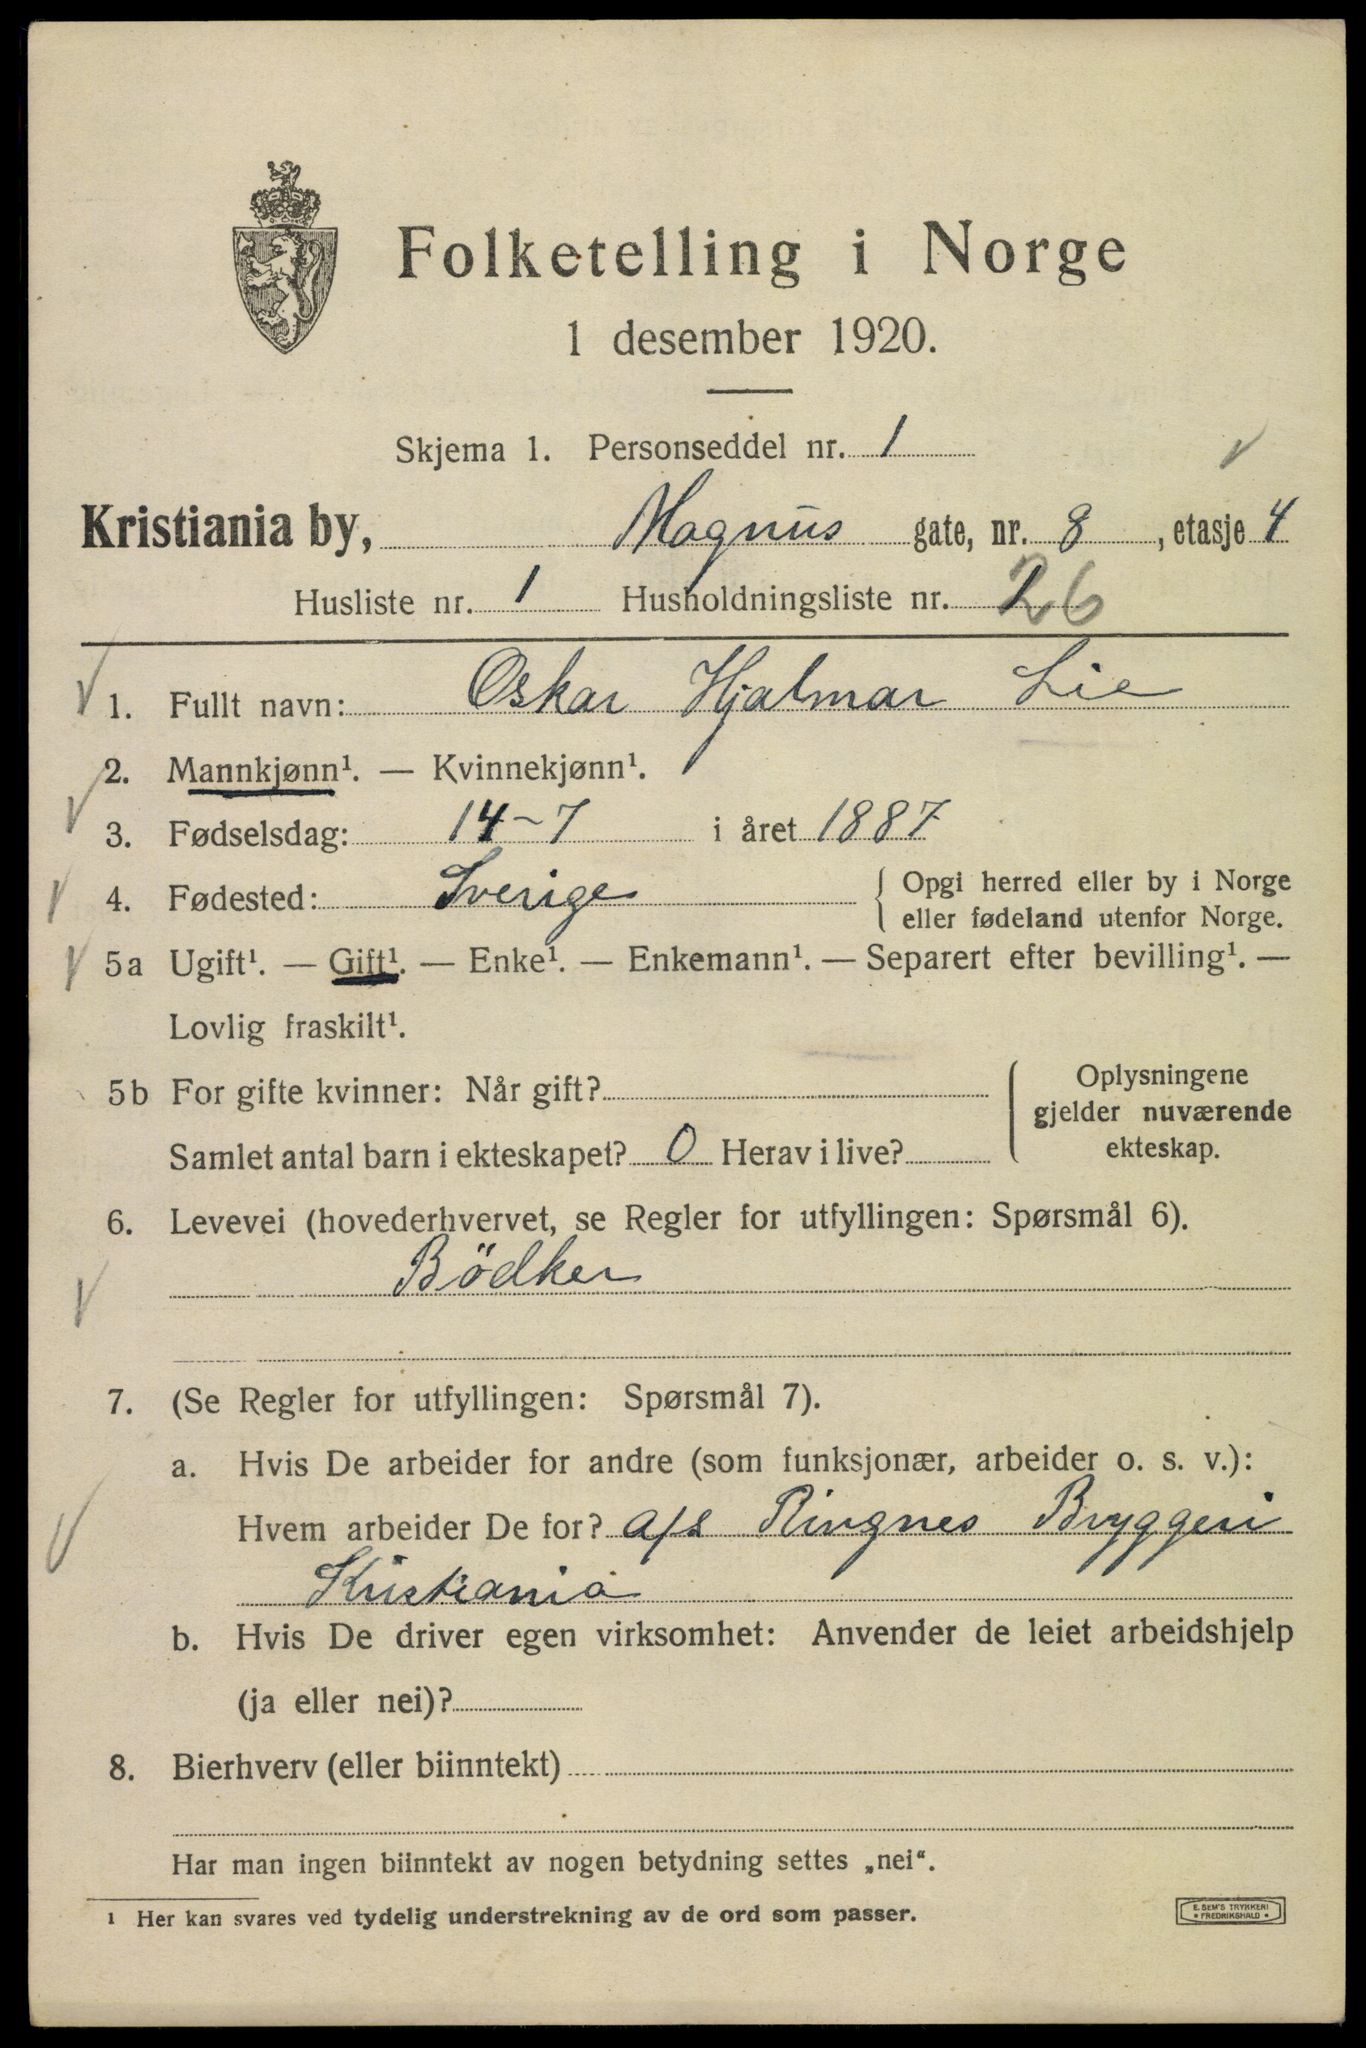 Folketelling i Norge
1 desember 1920.
Skjema 1. Personseddel nr. 1
Kristiania by, Magnus gate, nr. 8, etasje 4
Husliste nr. 1 Husholdningsliste nr. 1 26
1. Fullt navn: Oskar Hjalmar Lie
2. Mannkjønn¹. — Kvinnekjønn¹.
3. Fødselsdag: 14-7 i året 1887
4. Fødested: Sverige { Opgi herred eller by i Norge
eller fødeland utenfor Norge.
5a Ugift¹. — Gift¹. — Enke¹. — Enkemann¹. — Separert efter bevilling¹. —
Lovlig fraskilt¹.
5b For gifte kvinner: Når gift?
Samlet antal barn i ekteskapet? 0 Herav i live?
Oplysningene
gjelder nuværende
ekteskap.
6. Levevei (hovederhvervet, se Regler for utfyllingen: Spørsmål 6).
Bödker
7. (Se Regler for utfyllingen: Spørsmål 7).
a. Hvis De arbeider for andre (som funksjonær, arbeider o. s. v.):
Hvem arbeider De for? a/s Ringnes Bryggeri
Kristiania
b. Hvis De driver egen virksomhet: Anvender de leiet arbeidshjelp
(ja eller nei)?
8. Bierhverv (eller biinntekt)
Har man ingen biinntekt av nogen betydning settes „nei“.
1 Her kan svares ved tydelig understrekning av de ord som passer.
E. SEM'S TRYKKERI
• FREDRIKSHALD •